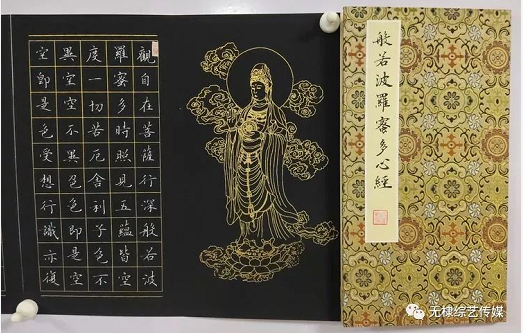 般若波羅蜜多心經
觀自在菩薩行深般若波
羅蜜多時照見五蘊皆空
度一切苦厄舍利子色不
異空空不異色色即是空
空即是色受想行識亦復
无棣综艺传媒